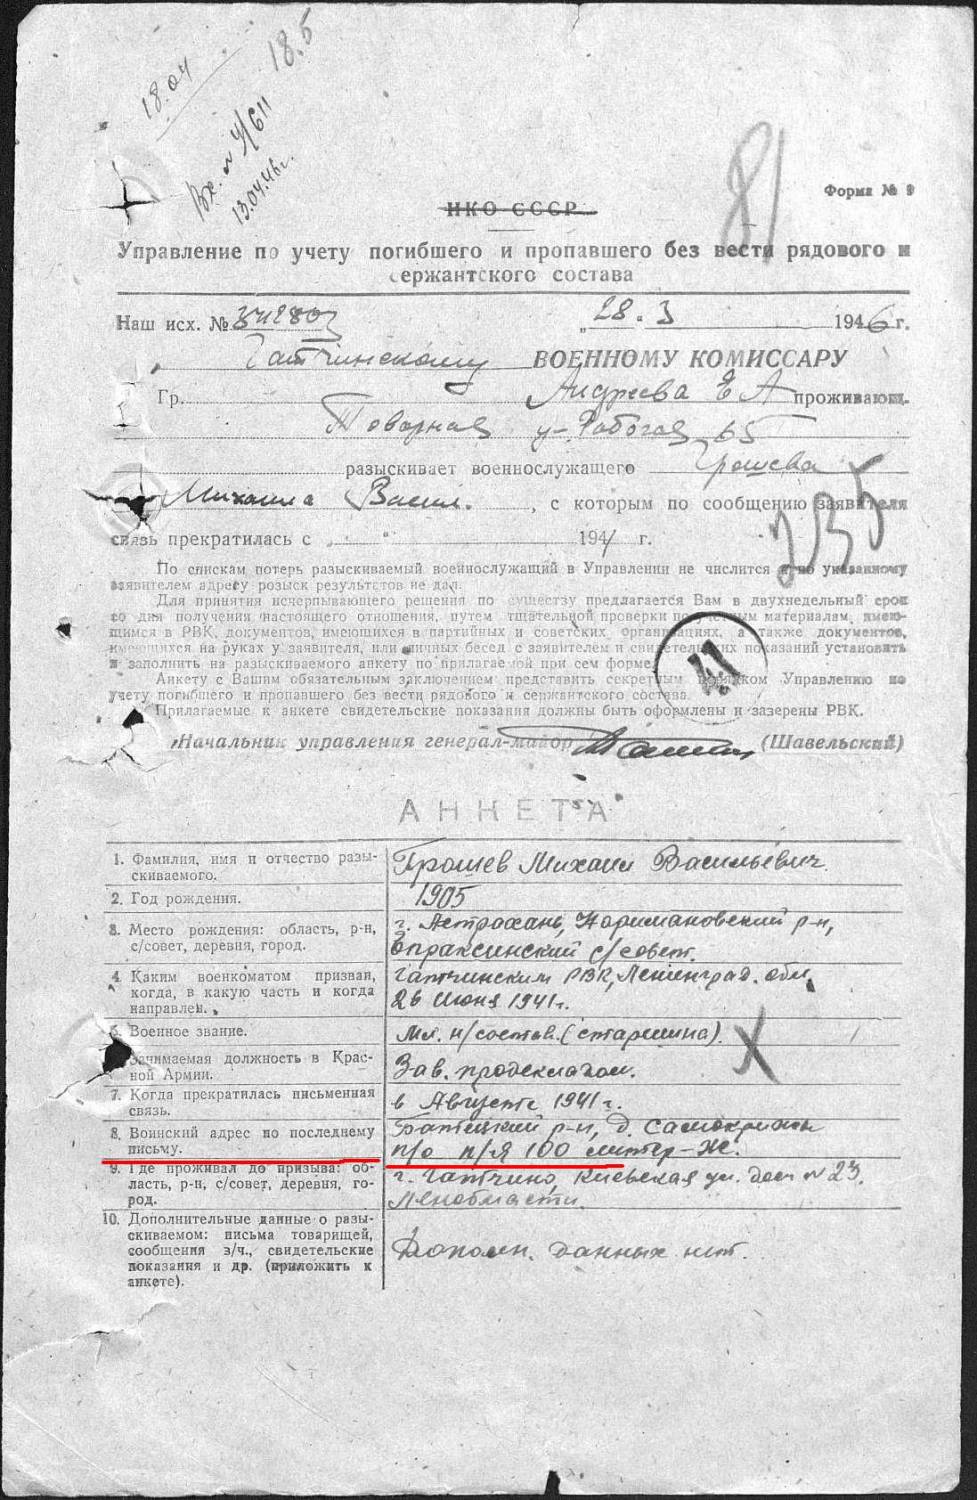 18.04
18.5
Вх. № 4/611
13.04.46г.
81
Форма № 9
НКО СССР
Управление по учету погибшего и пропавшего без вести рядового и
сержантского состава
Наш исх. №
„28. 3 1946 г.
Гатчинскому ВОЕННОМУ КОМИССАРУ
Гр. Андреева Е А проживающ.
Товарная у- Рабочая 65
разыскивает военнослужащего Грошева
Михаила Васил. , с которым по сообщению заявителя
связь прекратилась с „ " 1941 г.
235
По спискам потерь разыскиваемый военнослужащий в Управлении не числится и по указанному
заявителем адресу розыск результатов не дал.
Для принятия исчерпывающего решения по существу предлагается Вам в двухнедельный срок
со дня получения настоящего отношения, путем тщательной проверки по учетным материалам, имею-
щимся в РВК, документов, имеющихся в партийных и советских организациях, а также документов,
имеющихся на руках у заявителя, или личных бесед с заявителем и свидетельских показаний установить
и заполнить на разыскиваемого анкету по прилагаемой при сем форме.
Анкету с Вашим обязательным заключением представить секретным порядком Управлению по
учету погибшего и пропавшего без вести рядового и сержантского состава.
Прилагаемые к анкете свидетельские показания должны быть оформлены и заверены РВК.
Начальник управления генерал-майор (Шавельский)
АНКЕТА
1. Фамилия, имя и отчество разы-
скиваемого.
Грошев Михаил Васильевич
2. Год рождения.
1905
3. Место рождения: область, р-н,
с/совет, деревня, город.
г. Астрахань, Наримановский р-н,
Опраксинский с/совет.
4. Каким военкоматом призван,
когда, в какую часть и когда
направлен.
Гатчинским РВК, Ленинград. обл,
26 июня 1941г.
5. Военное звание.
Мл. н/состав. (старшина).
6. Занимаемая должность в Крас-
ной Армии.
Зав. продскладом.
7. Когда прекратилась письменная
связь.
в Августе 1941г.
8. Воинский адрес по последнему
письму.
Батецкий р-н, д. Самокрижи
п/о п/я 100 литер-Ж.
9. Где проживал до призыва: об-
ласть, р-н, с/совет, деревня, го-
род.
г. Гатчино, Киевская ул. дом № 23.
Ленобласти.
10. Дополнительные данные о разы-
скиваемом: письма товарищей,
сообщения в/ч., свидетельские
показания и др. (приложить к
анкете).
Дополн. данных нет.